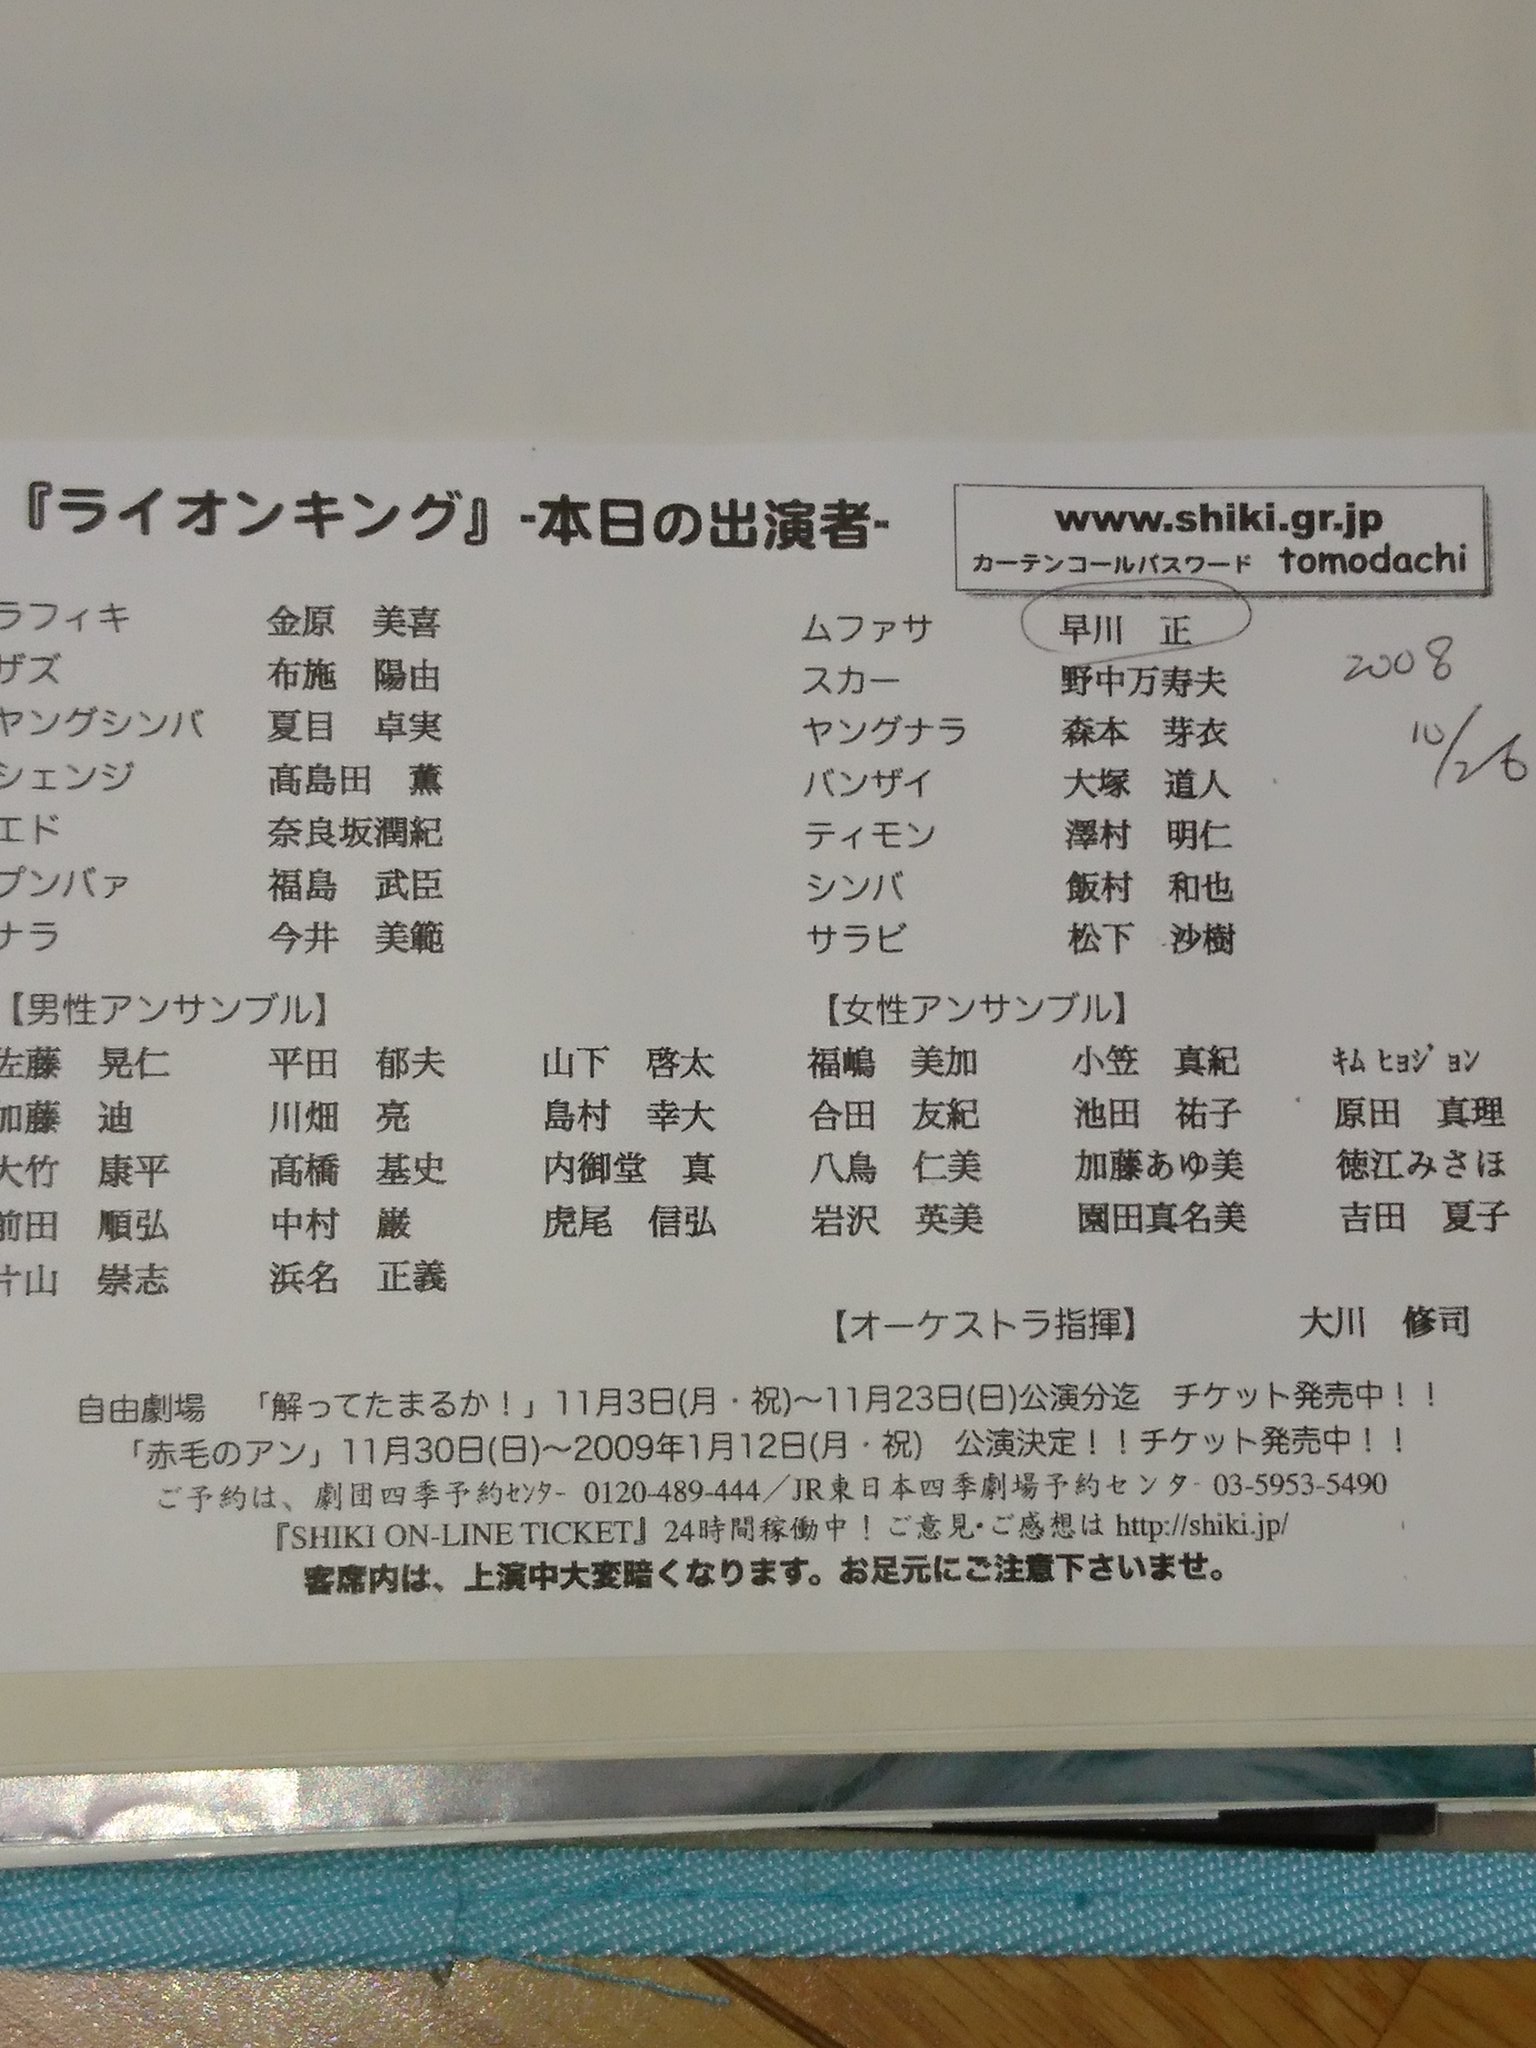 『ライオンキング』-本日の出演者-
www.shiki.gr.jp
カーテンコールパスワード tomodachi
ラフィキ 金原 美喜 ムファサ 早川 正
ザズ 布施 陽由 スカー 野中万寿夫 2008
ヤングシンバ 夏目 卓実 ヤングナラ 森本 芽衣 10/26
シェンジ 髙島田 薫 バンザイ 大塚 道人
エド 奈良坂潤紀 ティモン 澤村 明仁
プンバァ 福島 武臣 シンバ 飯村 和也
ナラ 今井 美範 サラビ 松下 沙樹
【男性アンサンブル】 【女性アンサンブル】
佐藤 晃仁 平田 郁夫 山下 啓太 福嶋 美加 小笠 真紀 ｷﾑ ﾋｮｼﾞｮﾝ
加藤 迪 川畑 亮 島村 幸大 合田 友紀 池田 祐子 原田 真理
大竹 康平 髙橋 基史 内御堂 真 八鳥 仁美 加藤あゆ美 徳江みさほ
前田 順弘 中村 巌 虎尾 信弘 岩沢 英美 園田真名美 吉田 夏子
片山 崇志 浜名 正義
【オーケストラ指揮】 大川 修司
自由劇場 「解ってたまるか！」11月3日(月・祝)～11月23日(日)公演分迄 チケット発売中！！
「赤毛のアン」11月30日(日)～2009年1月12日(月・祝) 公演決定！！チケット発売中！！
ご予約は、劇団四季予約ｾﾝﾀｰ 0120-489-444／JR東日本四季劇場予約センター 03-5953-5490
『SHIKI ON-LINE TICKET』24時間稼働中！ご意見･ご感想は http://shiki.jp/
客席内は、上演中大変暗くなります。お足元にご注意下さいませ。